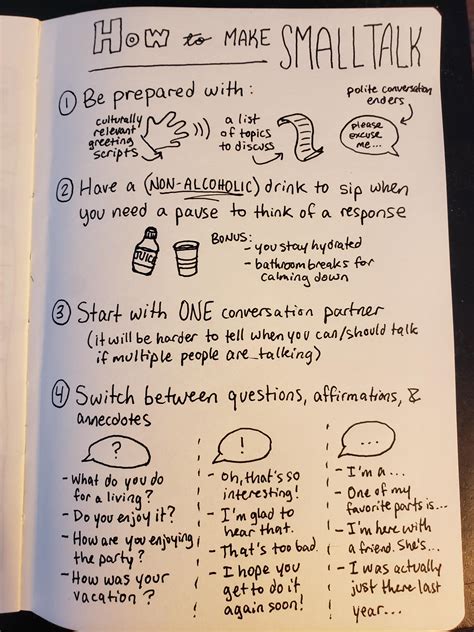 How to MAKE SMALL TALK
① Be prepared with:
culturally
relevant
greeting
scripts
a list
of topics
to discuss
polite conversation
enders
please
excuse
me...
② Have a (NON-ALCOHOLIC) drink to sip when
you need a pause to think of a response
JUICE
BONUS:
- you stay hydrated
- bathroom breaks for
calming down
③ Start with ONE conversation partner
(it will be harder to tell when you can/should talk
if multiple people are talking)
④ Switch between questions, affirmations, &
annecdotes
?
- What do you do
for a living?
- Do you enjoy it?
- How are you enjoying
the party?
- How was your
vacation?
!
- Oh, that's so
interesting!
- I'm glad to
hear that.
- That's too bad.
- I hope you
get to do it
again soon!
...
- I'm a...
- One of my
favorite parts is...
- I'm here with
a friend. She's...
- I was actually
just there last
year...